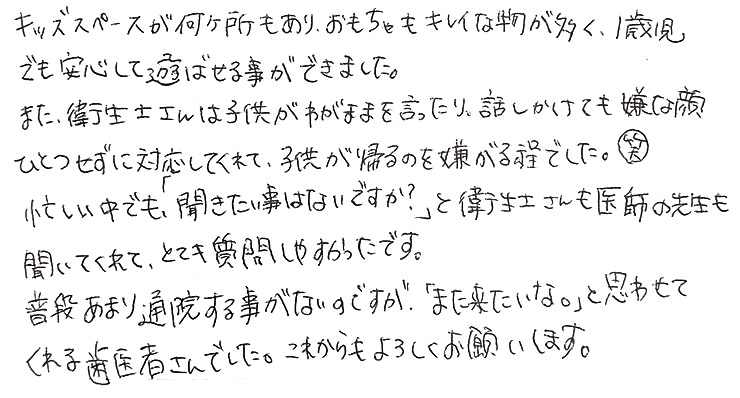 キッズスペースが何ヶ所もあり、おもちゃもキレイな物が多く、1歳児
でも安心して遊ばせる事ができました。
また、衛生士さんは子供がわがままを言ったり、話しかけても嫌な顔
ひとつせずに対応してくれて、子供が帰るのを嫌がる程でした。笑
忙しい中でも、「聞きたい事はないですか?」と衛生士さんも医師の先生も
聞いてくれて、とても質問しやすかったです。
普段あまり通院する事がないのですが、「また来たいな。」と思わせて
くれる歯医者さんでした。これからもよろしくお願いします。